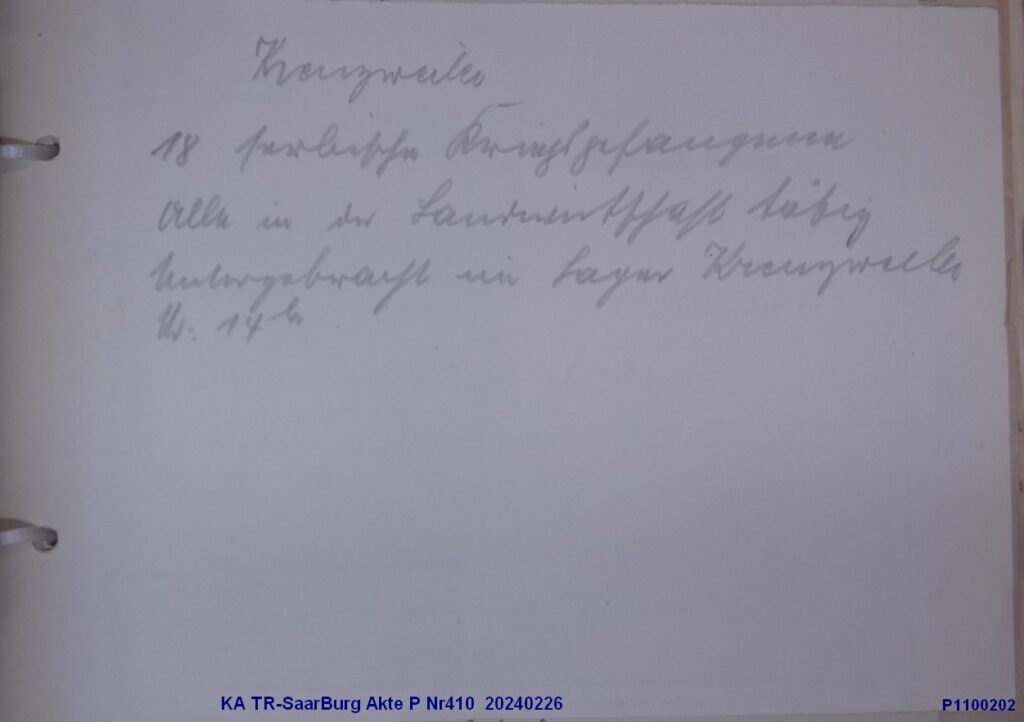 Kreuzweiler
18 serbische Kriegsgefangene
Alle in der Landwirtschaft tätig
Untergebracht im Lager Kreuzweiler
Nr. 14
KA TR-SaarBurg Akte P Nr410 20240226
P1100202